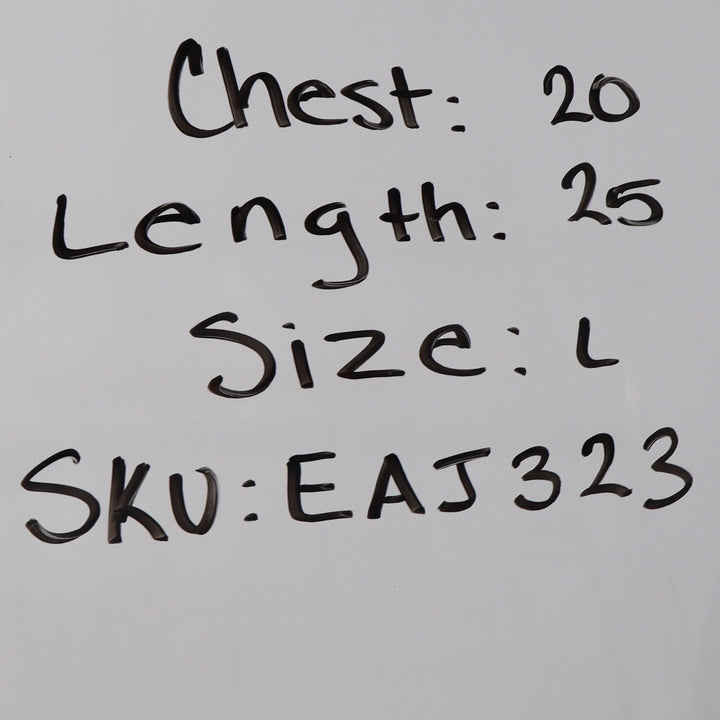 Chest: 20
Length: 25
Size: L
SKU: EAJ323